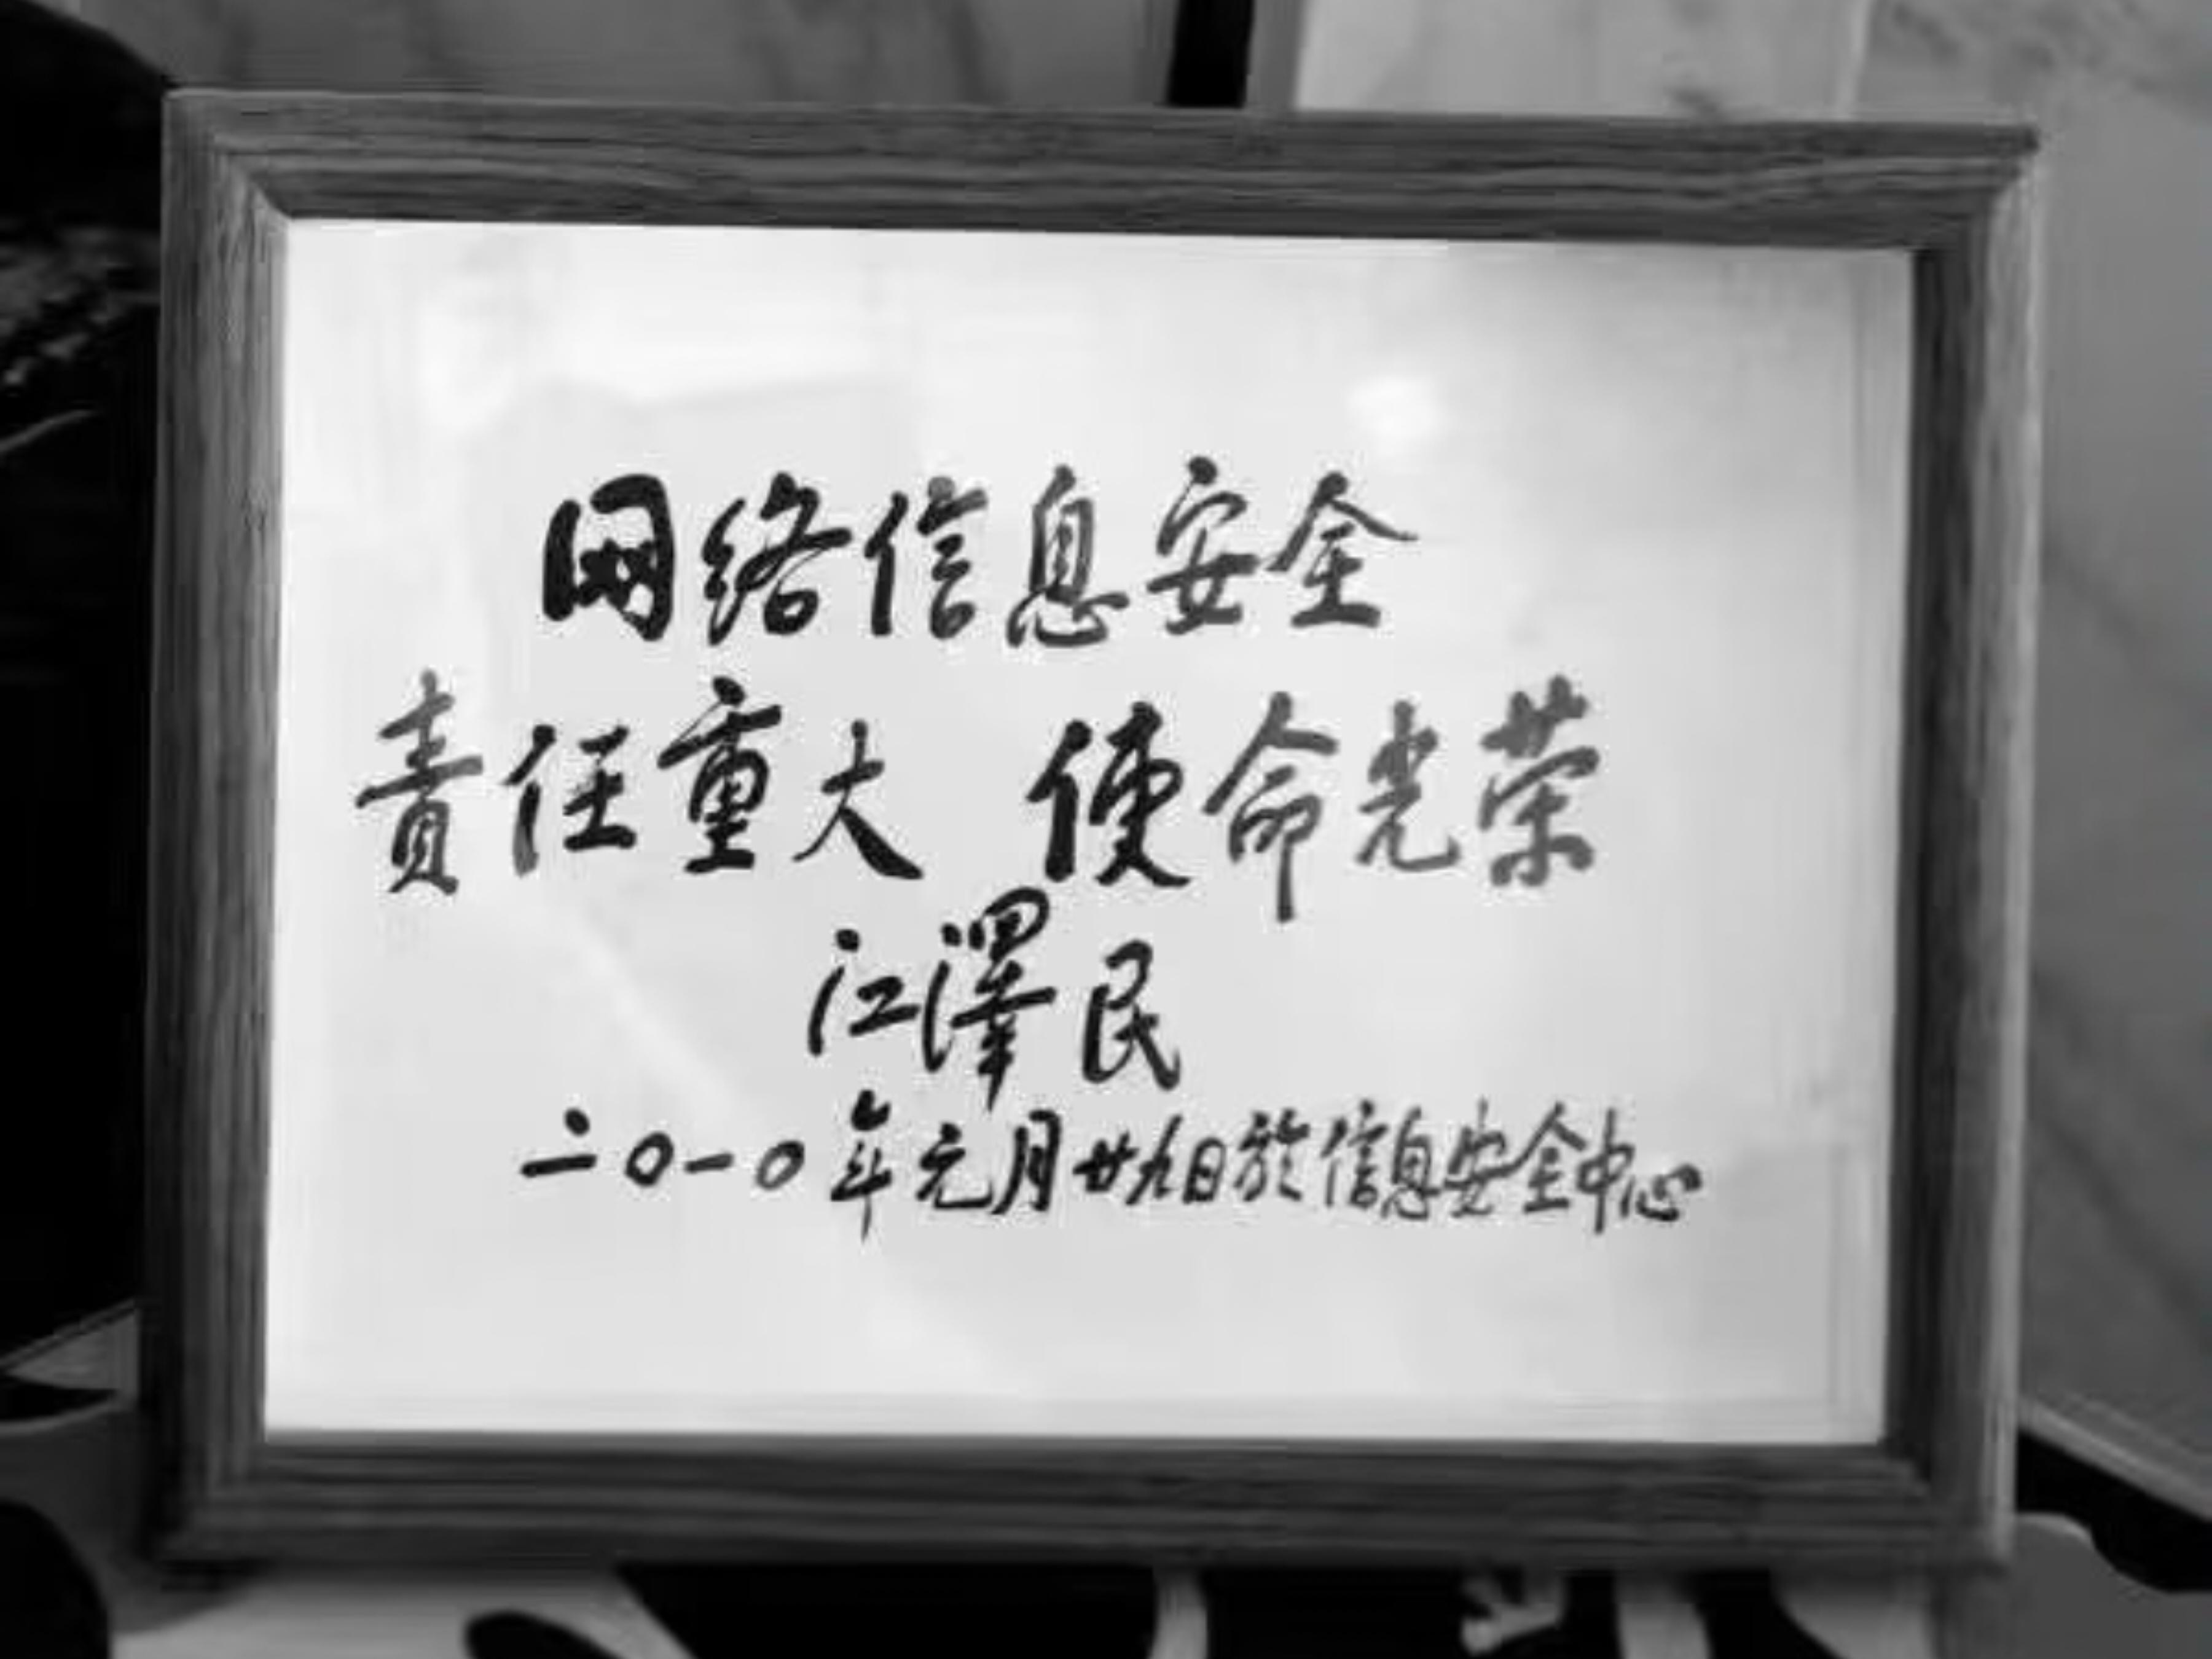 网络信息安全
责任重大 使命光荣
江澤民
二〇一〇年元月廿九日於信息安全中心